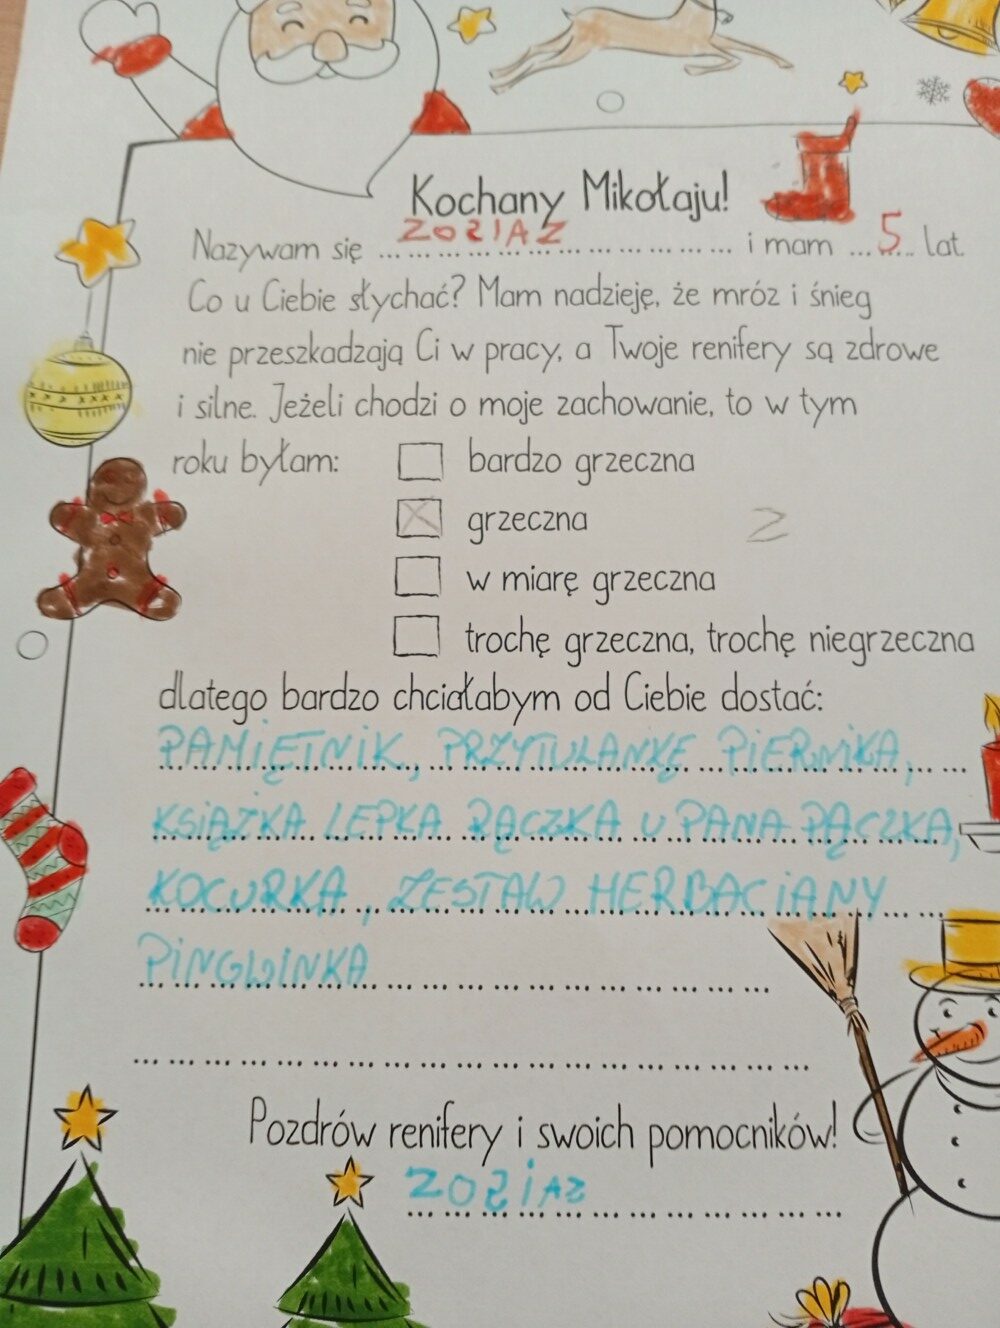 Kochany Mikołaju!
Nazywam się ZOSIAZ i mam 5 lat.
Co u Ciebie słychać? Mam nadzieję, że mróz i śnieg
nie przeszkadzają Ci w pracy, a Twoje renifery są zdrowe
i silne. Jeżeli chodzi o moje zachowanie, to w tym
roku byłam: bardzo grzeczna
grzeczna Z
w miarę grzeczna
trochę grzeczna, trochę niegrzeczna
dlatego bardzo chciałabym od Ciebie dostać:
PAMIĘTNIK, PRZYTULANKĘ PIERNIKA,
KSIĄŻKA LEPKA RĄCZKA U PANA PĄCZKA,
KOCURKA, ZESTAW HERBACIANY
PINGWINKA
Pozdrów renifery i swoich pomocników!
ZOSIAZ